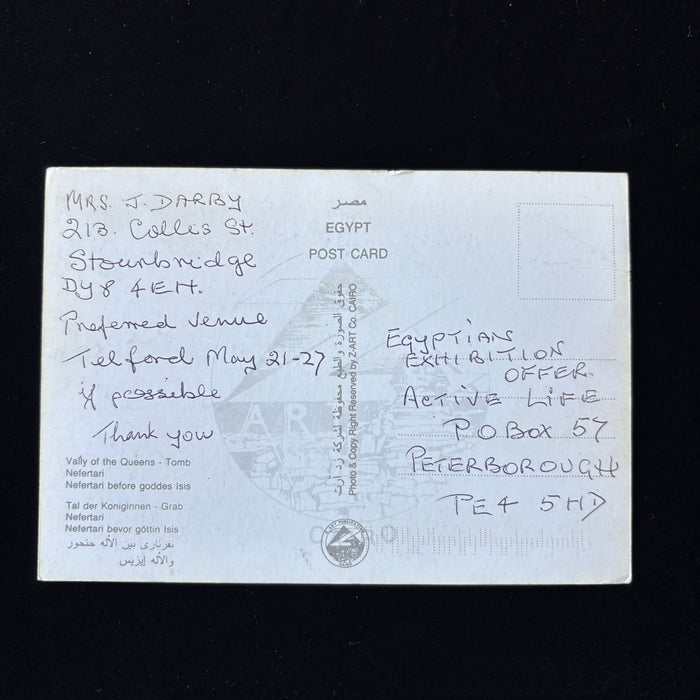 MRS. J. DARBY
213. Colles St.
Stourbridge
DY8 4EH.
Preferred venue
Telford May 21-27
if possible
Thank you
Vally of the Queens - Tomb
Nefertari
Nefertari before goddes Isis
Tal der Koniginnen - Grab
Nefertari
Nefertari bevor göttin Isis
نفرتارى بين الأله حتحور
والأله إيزيس
مصر
EGYPT
POST CARD
حقوق الصورة والطبع محفوظة لشركة زد - آرت
Photo & Copy Right Reserved by Z-ART Co. CAIRO
ART
EGYPTIAN
EXHIBITION
OFFER.
ACTIVE LIFE
P.O. BOX 57
PETERBOROUGH
PE4 5HD